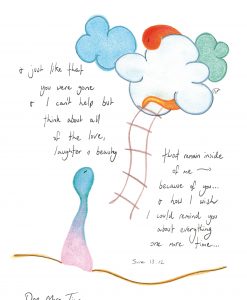 & just like that
you were gone
& I can't help but
think about all
of the love,
laughter & beauty
that remain inside
of me →
because of you...
& how I wish
I could remind you
about everything
one more time...